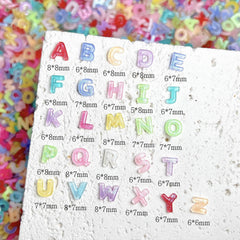 A B C D E
8*8mm 8*7mm 6*8mm 6*8mm 6*7mm
F G H I J
6*8mm 7*8mm 8*7mm 5*8mm 6*7mm
K L M N O
8*7mm 6*7mm 8*7mm 7*7mm 6*7mm
P Q R S T
6*7mm 7*7mm 6*7mm 6*7mm 6*7mm
U V W X Y Z
7*7mm 8*7mm 8*7mm 6*7mm 6*7mm 6*6mm